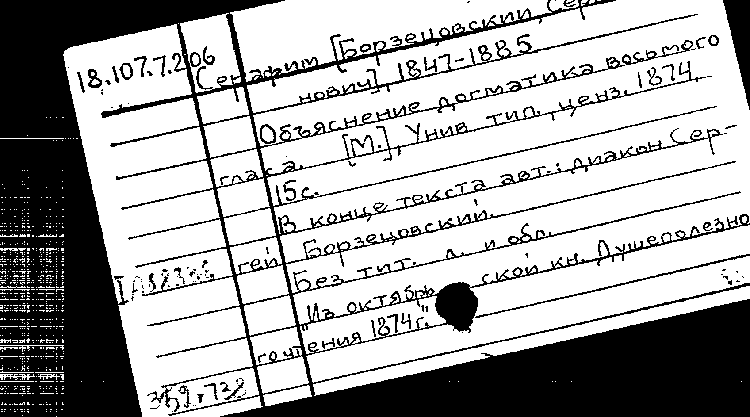 18.107.7.206
Серафим [Борзецовский, Сер
нович], 1847-1885
Объяснение догматика восьмого
гласа. [М.], Унив тип., ценз. 1874.
15с.
В конце текста авт.: диакон Сер-
гей Борзецовский.
Без тит. л. и обл.
"Из октябрь ской кн. Душеполезно
го чтения 1874г."